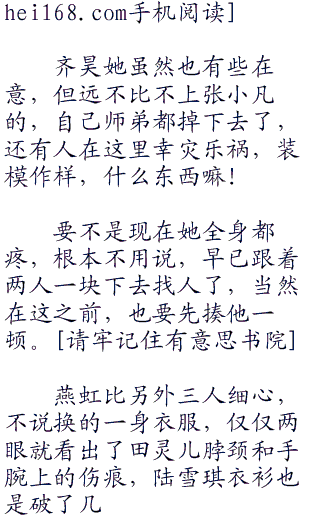 hei168.com手机阅读]
齐昊她虽然也有些在
意，但远不比不上张小凡
的，自己师弟都掉下去了，
还有人在这里幸灾乐祸，装
模作样，什么东西嘛！
要不是现在她全身都
疼，根本不用说，早已跟着
两人一块下去找人了，当然
在这之前，也要先揍他一
顿。[请牢记住有意思书院]
燕虹比另外三人细心，
不说换的一身衣服，仅仅两
眼就看出了田灵儿脖颈和手
腕上的伤痕，陆雪琪衣衫也
是破了几